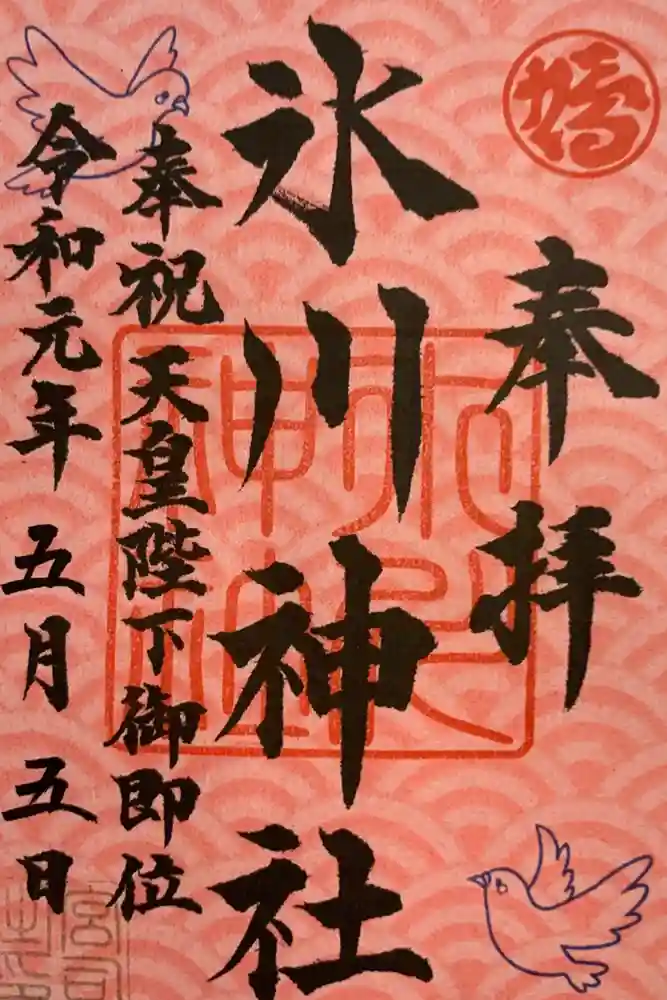 奉拝
氷川神社
奉祝 天皇陛下御即位
令和元年 五月 五日